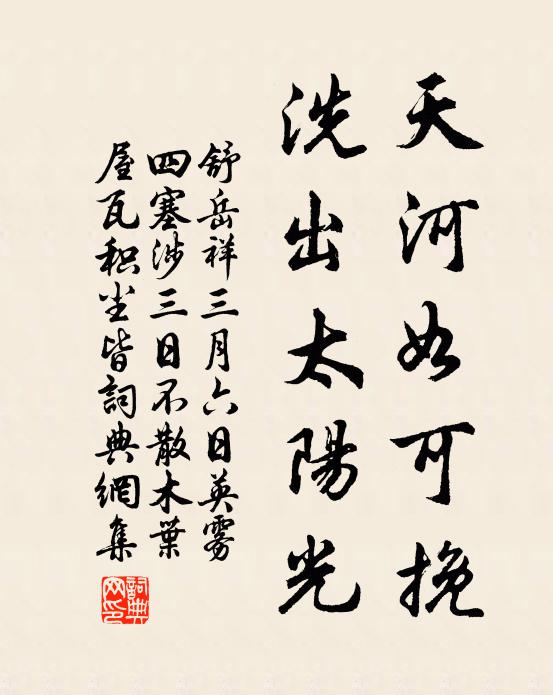 天河如可挽
洗出太陽光
舒岳祥三月六日英雾
四塞涉三日不散木葉
屋瓦积尘皆詞典網集
詞典網印